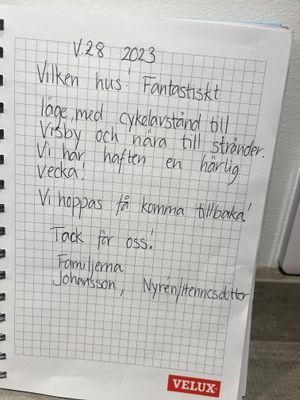 V.28 2023
Vilken hus! Fantastiskt
läge, med cykelavstånd till
Visby och nära till stränder.
Vi har haften en härlig
vecka!
Vi hoppas få komma tillbaka!
Tack för oss!
Familjerna
Johansson, Nyrén/Henricsdotter
VELUX